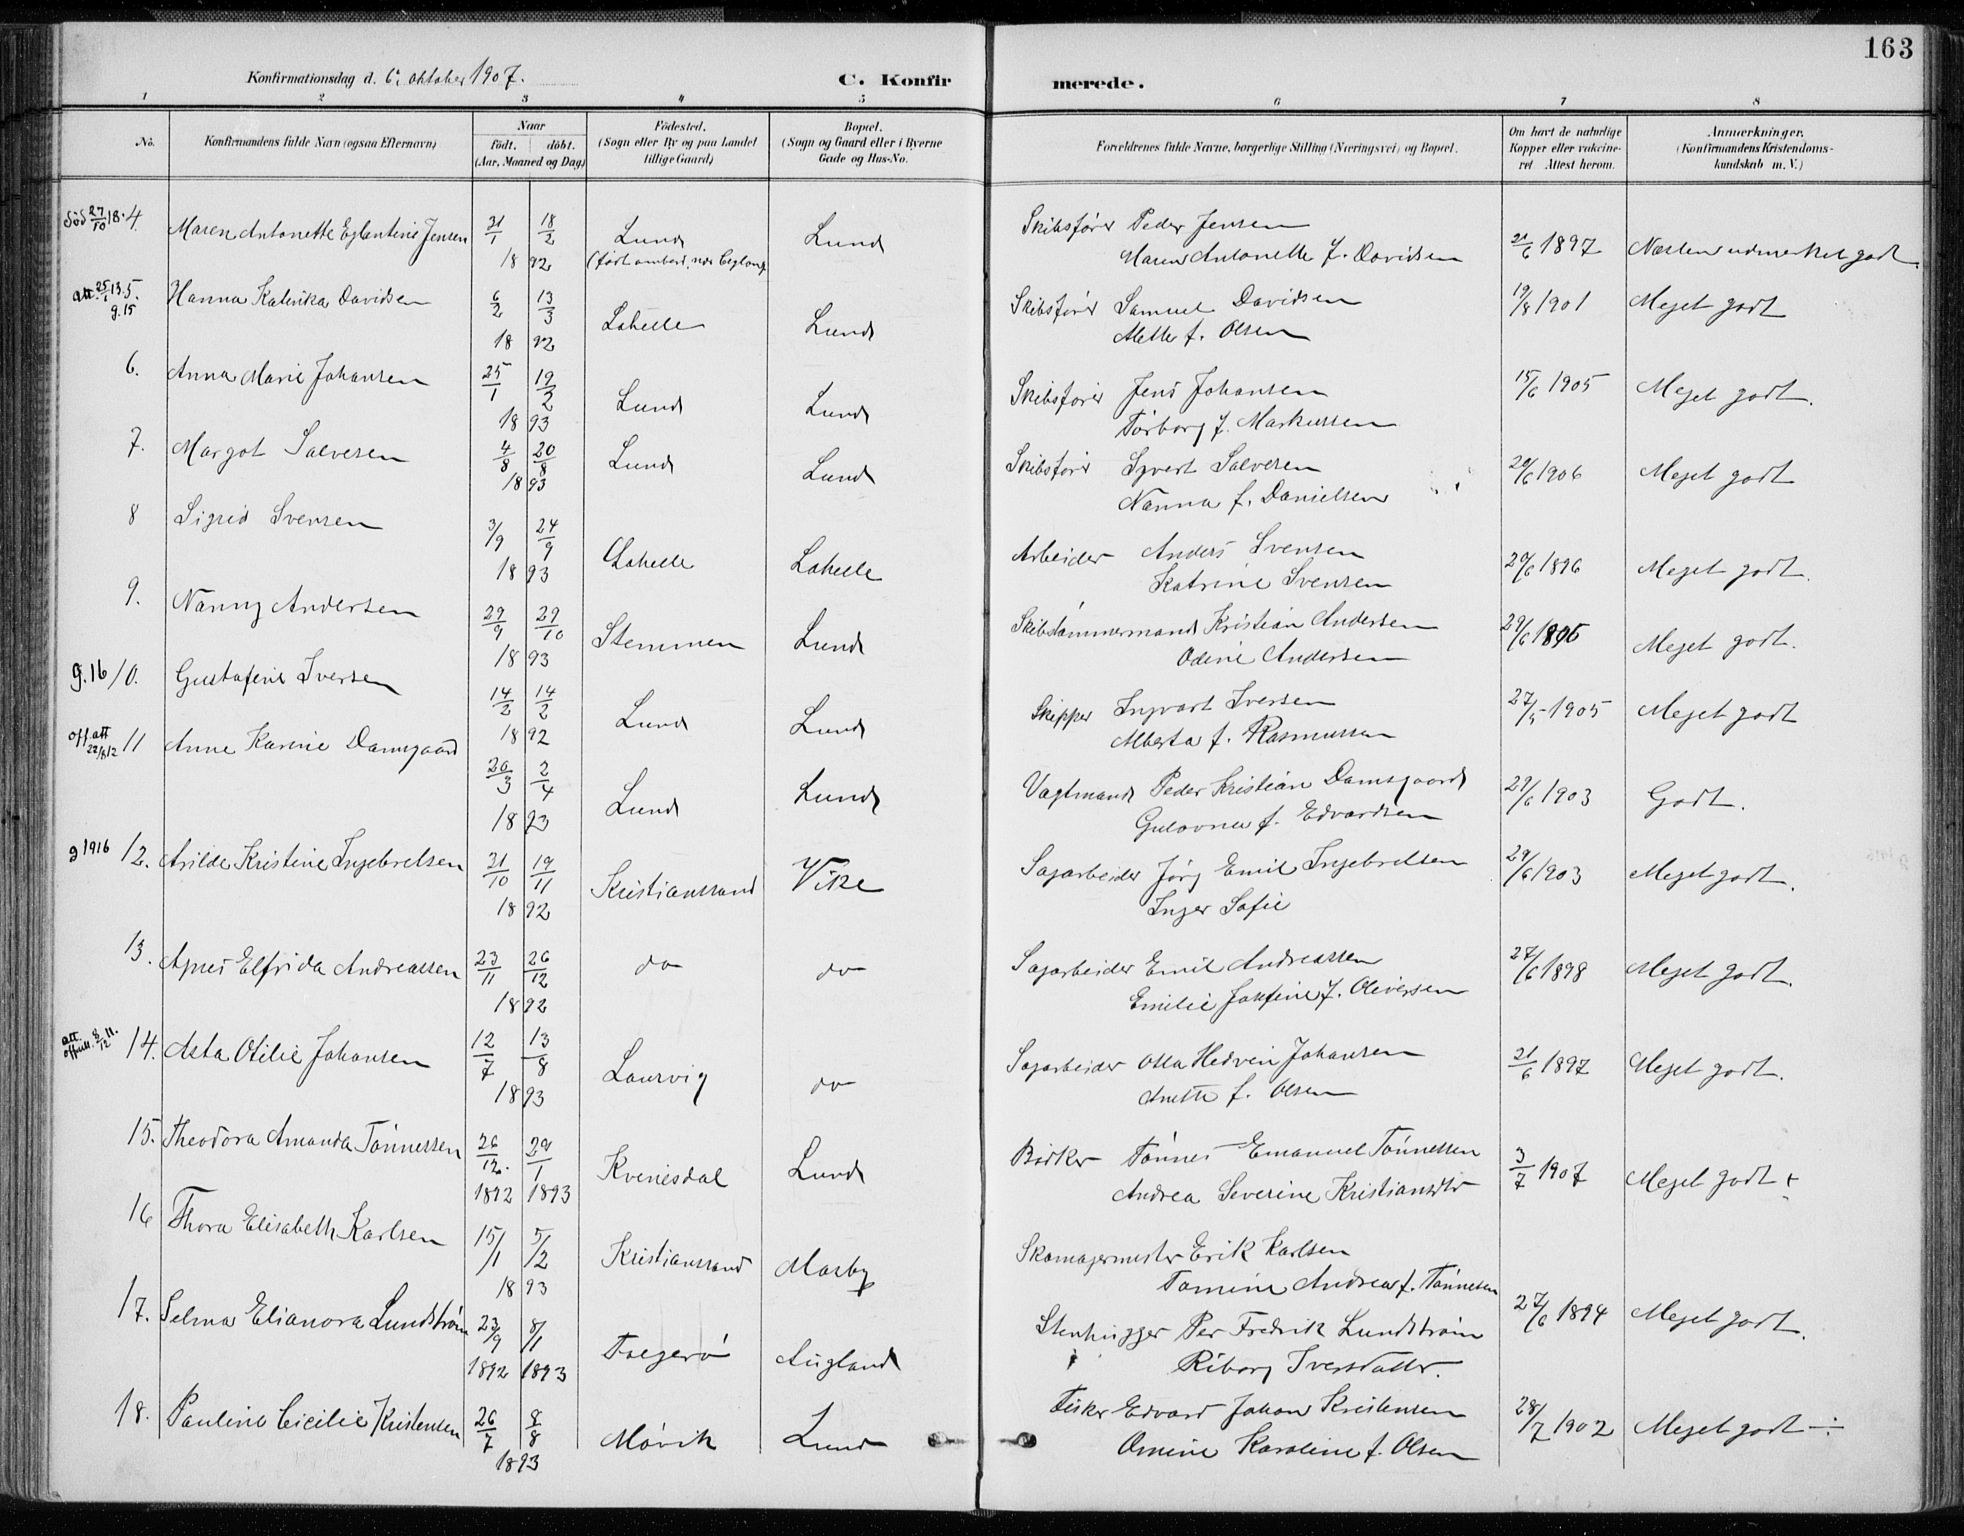 163
Konfirmationsdag d. 6. oktober 1907. C. Konfir merede.
1 2 3 4 5 6 7 8
No. Konfirmandens fulde Navn (ogsaa Efternavn) Naar født. døbt. (Aar, Maaned og Dag) Fødested. (Sogn eller By og paa Landet tillige Gaard) Bopæl. (Sogn og Gaard eller i Byerne Gade og Hus-No. Forældrenes fulde Navne, borgerlige Stilling (Næringsvei) og Bopæl. Om havt de naturlige Kopper eller vakcineret Attest herom. Anmerkninger. (Konfirmandens Kristendomskundskab m. V.)
död 27/10 18. 4. Maren Antonette Eglantine Jensen 31/1 18/2 1892 Lund (født ombord, nær Ceylon) Lund Skibsfører Peder Jensen
Maren Antonette f. Davidsen 21/6 1897 Næsten udmerket godt.
att. 25/1 13. g. 15 5. Hanna Katinka Davidsen 6/2 13/3 1892 Lahelle Lund Skibsfører Samuel Davidsen
Mette f. Olsen 19/8 1901 Meget godt
6. Anna Marie Johansen 25/1 19/2 1893 Lund Lund Skibsfører Jens Johansen
Torborg f. Markussen 15/6 1905 Meget godt.
7. Margot Salvesen 4/8 20/8 1893 Lund Lund Skibsfører Syvert Salvesen
Nanna f. Danielsen 20/6 1906 Meget godt
8 Sigrid Svensen 3/9 24/9 1893 Lahelle Lahelle Arbeider Anders Svensen
Katrine Svensen 29/6 1896 Meget godt.
9. Nanny Andersen 29/9 29/10 1893 Stemmen Lund Skibstømmermand Kristian Andersen
Odine Andersen 29/6 1896 Meget godt.
g. 16 10. Gustafine Iversen 14/2 14/2 1892 Lund Lund Skipper Ingvart Iversen
Alberta f. Rasmussen 27/5 1905 Meget godt
off. att 22/8 12 11 Anne Karine Damsgaard 26/3 2/4 1893 Lund Lund Vagtmand Peder Kristian Damsgaard
Gulovna f. Edvardsen 29/6 1903 Godt.
g 1916 12. Arilde Kristine Ingebretsen 31/10 19/11 1892 Kristianssand Vike Sagarbeider Jørg Emil Ingebretsen
Inger Sofie 29/6 1903 Meget godt.
13. Agnes Elfrida Andreassen 23/11 26/12 1892 do do Sagarbeider Emil Andreassen
Emilie Josefine f. Oliversen 27/6 1898 Meget godt.
att. offntl. 8/12 11. 14. Asta Otilie Johansen 12/7 13/8 1893 Laurvig do Sagarbeider Otto Hedvin Johansen
Anette f. Olsen 21/6 1897 Meget godt.
15. Theodora Amanda Tønnessen 26/12. 29/1 1892 1893 Kvinesdal Lund Bødker Tønnes Emanuel Tønnessen
Andrea Severine Kristiansdtr 3/7 1907 Meget godt +
16 Thora Elisabeth Karlsen 15/1 5/2 1893 Kristianssand Mosby Skomagermester Erik Karlsen
Tomine Andrea f. Tønnesen
17. Selma Elianora Lundstrøm 23/9 8/1 1892 1893 Augland Stenhugger Per Fredrik Lundstrøm
Riborg Iversdatter. 27/6 1894 Meget godt.
18. Pauline Cicilie Kristensen 26/7 8/8 1893 Møvik Lund Fisker Edvard Johan Kristensen
Omine Karoline f. Olsen 28/7 1902 Meget godt ÷